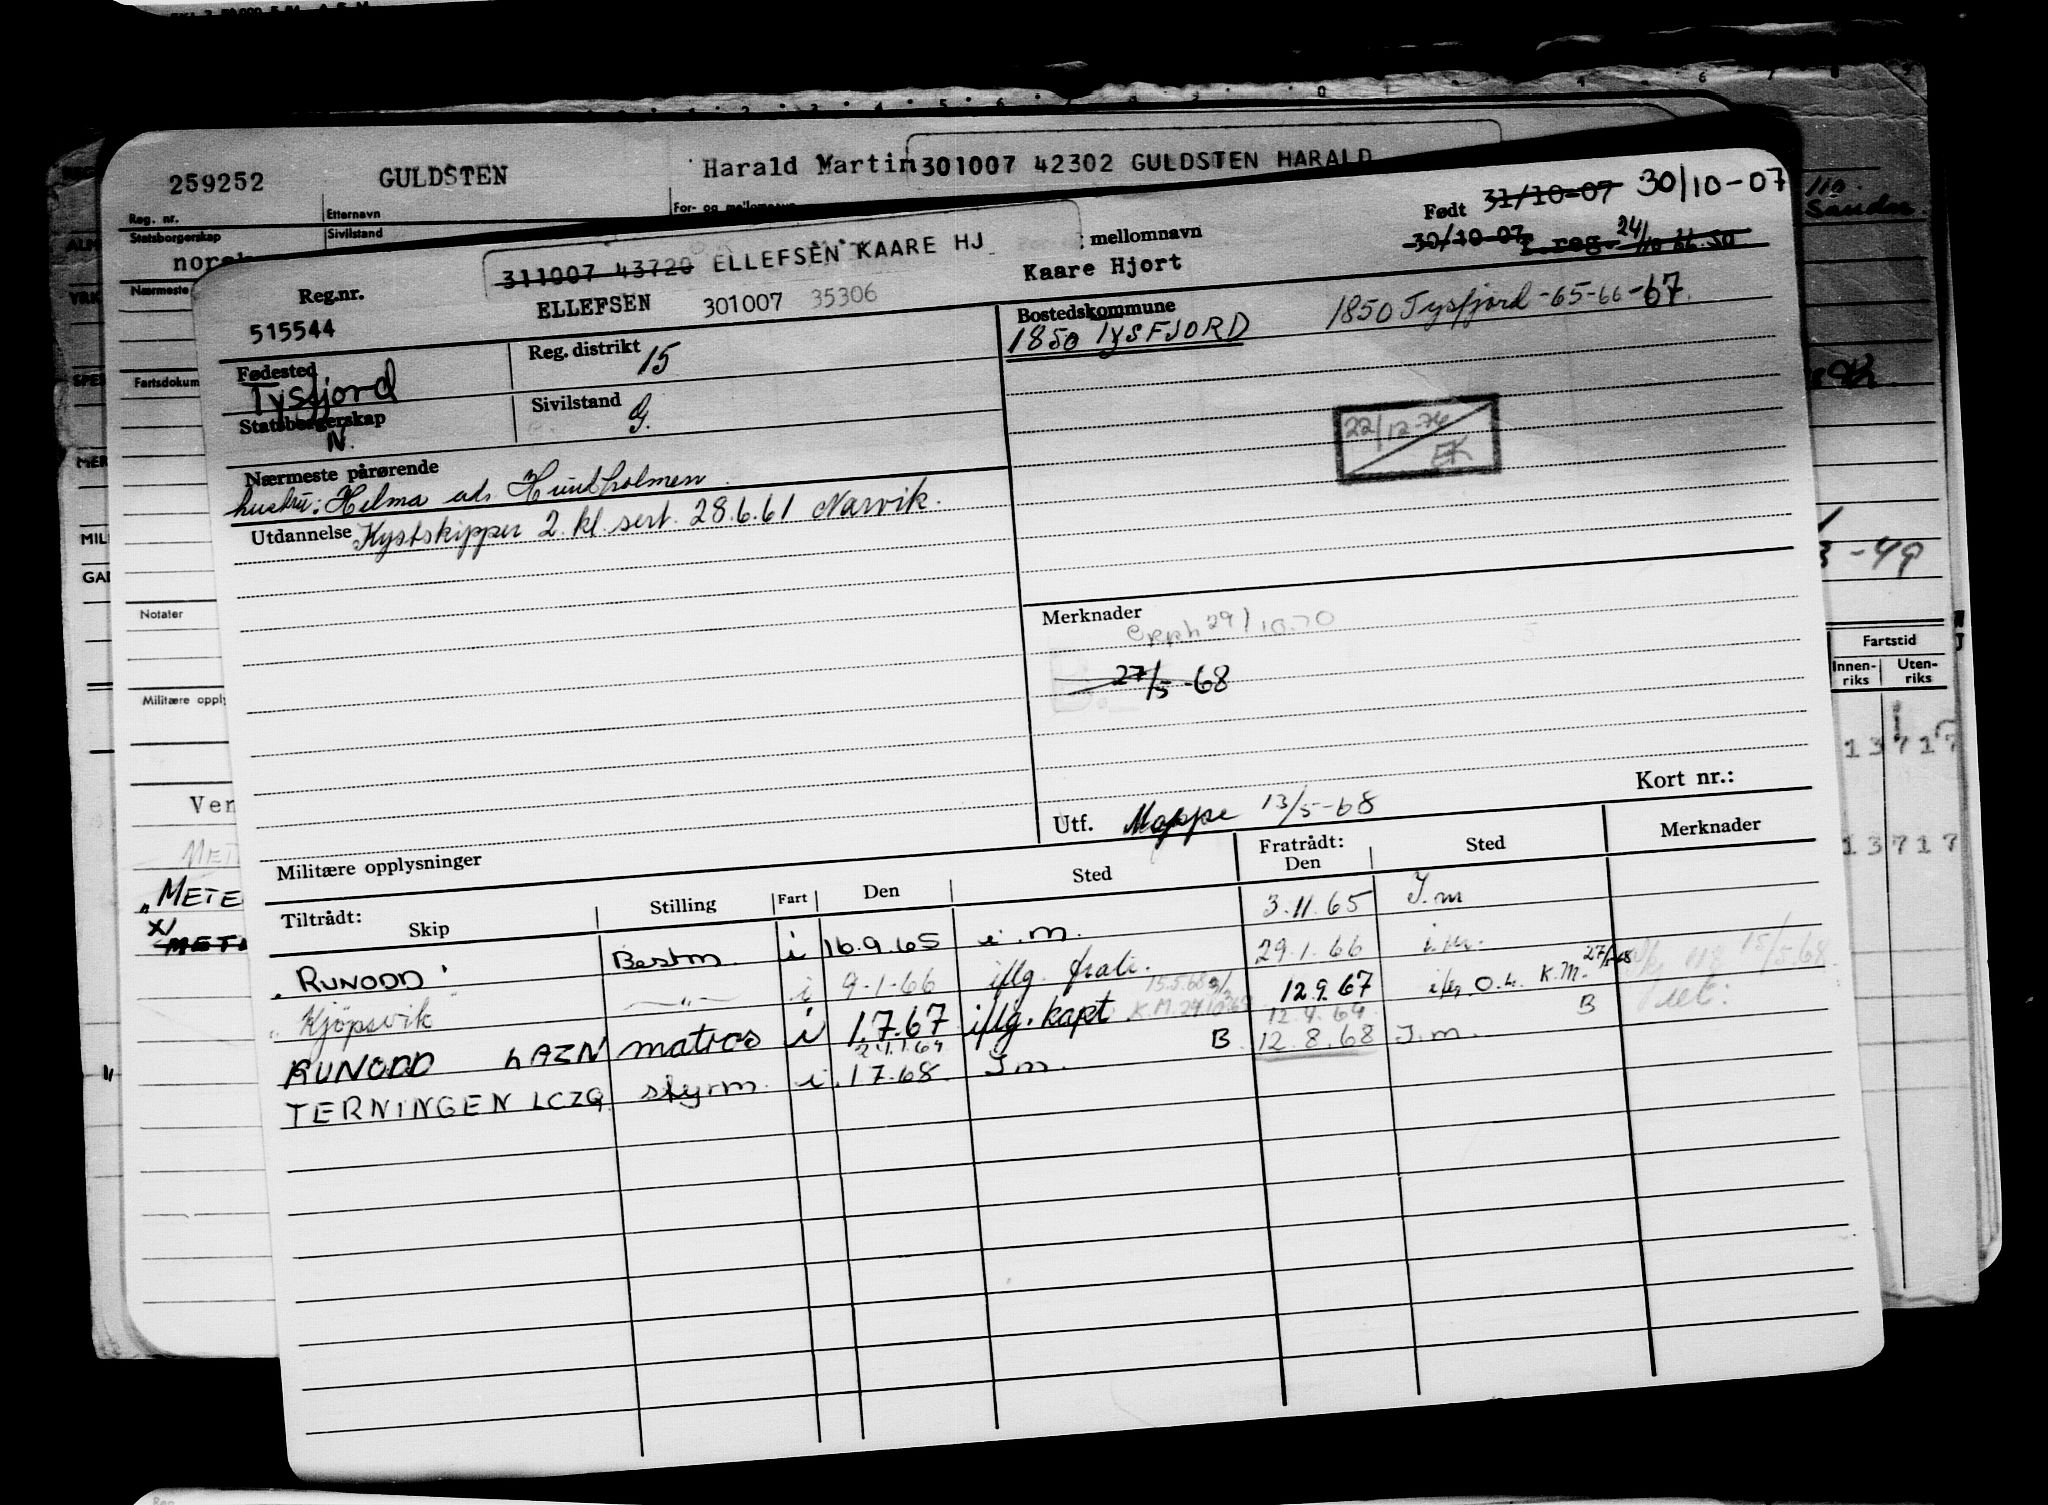 259252 GULDSTEN Harald Martin 301007 42302 GULDSTEN HARALD
Reg. nr. Etternavn For- og mellomnavn
Statsborgerskap Sivilstand
Nærmeste
Fartsdokum
Notater
Militære oppl
Ver
METE
GAI
MIL
3-49
Fartstid
Innen-riks Uten-riks
13717
13717
311007 43720 ELLEFSEN KAARE HJ mellomnavn Født 31/10-07 30/10-07
30/10-07
Reg.nr. ELLEFSEN 301007 35306 Kaare Hjort
515544
Fødested Reg. distrikt 15 Bostedskommune 1850 Tysfjord -65-66-67.
Tysfjord 1850 TYSFJORD
Statsborgerskap Sivilstand
N. G.
22/12-76
EK
Nærmeste pårørende
hustru: Helma ads Hundholmen.
Utdannelse Kystskipper 2. kl. sert. 28.6.61 Narvik.
Merknader
29/10.70
27/5-68
Utf. Mappe 13/5-68 Kort nr.:
Militære opplysninger
Tiltrådt: Skip Stilling Fart Den Sted Fratrådt: Den Sted Merknader
"RUNODD" Bestm. i 16.9.65 i.m. 3.11.65 I.m
"Kjöpsvik —"— i 9.1.66 iflg. 29.1.66 i.m.
RUNODD LAZN matros i 1.7.67 iflg. kapt 12.9.67 K.M. 27/5-68
TERNINGEN LCZQ styrm. i 1.7.68. I m. B 12.8.68 I.m. B